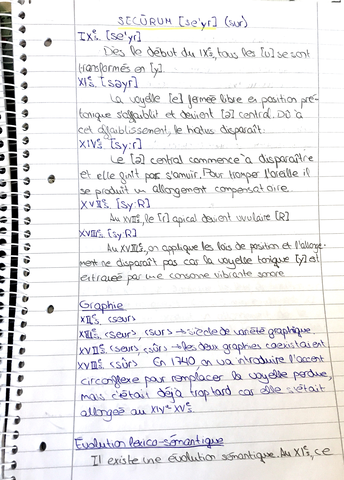 SECŪRUM [se'yr] (sur)
IXᵉs. [se'yr]
Dès le début du IXᵉs, tous les [u] se sont
transformés en [y].
XIᵉs. [səyr]
La voyelle [e] fermée libre en position pré-
tonique s'affaiblit et devient [ə] central. Dû à
cet affaiblissement, le hiatus disparaît.
XIVᵉs [sy:r]
Le [ə] central commence à disparaître
et elle finit par s'amuir. Pour tromper l'oreille il
se produit un allongement compensatoire.
[sy:R]
Au XVIIᵉs, le [r] apical devient uvulaire [R]
XVIIIᵉs [sy:R]
Au XVIIIᵉs, on applique les lois de position et l'allonge-
ment ne disparaît pas car la voyelle tonique [y] est
entravée par une consonne vibrante sonore
Graphie
XIIᵉs. <seur>
XIIIᵉs. <seur>, <sur> → siècle de variété graphique.
XVIIᵉs <seur>, <sûr> → les deux graphies coexistaient
XVIIIᵉs <sûr> En 1740, on va introduire l'accent
circonflexe pour remplacer la voyelle perdue,
mais c'était déjà trop tard car elle s'était
allongée au XIVᵉ-XVᵉs.
Évolution lexico-sémantique
Il existe une évolution sémantique. Au XIᵉs, ce